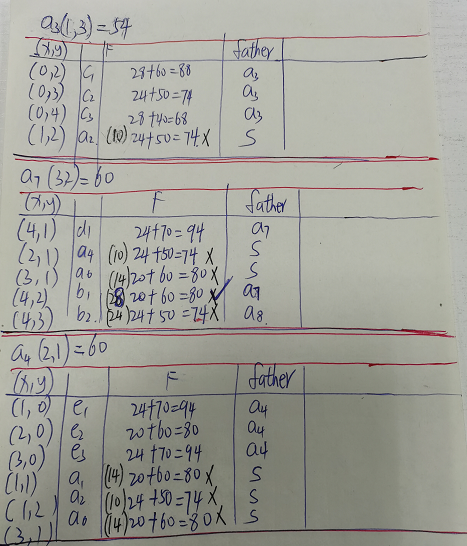 a3(1,3)=54
(x,y) F father
(0,2) c1 28+60=88 a3
(0,3) c2 24+50=74 a3
(0,4) c3 28+40=68 a3
(1,2) a2 (10) 24+50=74X S
a7(32)=60
(x,y) F father
(4,1) d1 24+70=94 a7
(2,1) a4 (10) 24+50=74 X S
(3,1) a6 (14) 20+60=80X S
(4,2) b1 20+60=80 a7
(4,3) b2 (24) 24+50=74X a8
a4(2,1)=60
(x,y) F father
(1,0) e1 24+70=94 a4
(2,0) e2 20+60=80 a4
(3,0) e3 24+70=94 a4
(1,1) a1 (14) 20+60=80X S
(1,2) a2 (10) 24+50=74X S
(3,1) a6 (14) 20+60=80X S